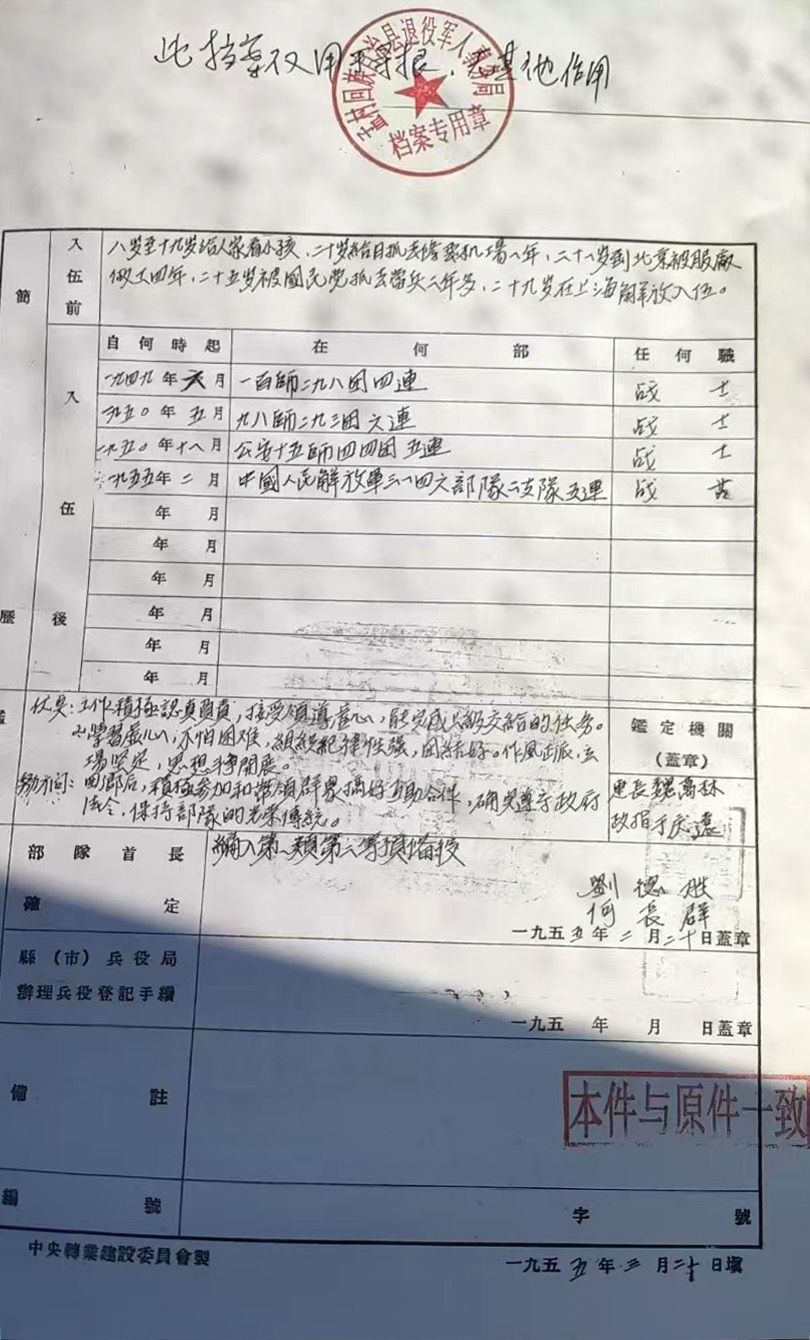 此档案仅用于寻根，无其他作用
孟村回族自治县退役军人事务局
档案专用章
簡歷
入伍前
八岁至十九岁给人家看小孩，二十岁給日抓去修飛机場一年，二十一岁到北京被服廠
做工四年，二十五岁被國民党抓去當兵三年多，二十九岁在上海解放入伍。
入伍後
自何時起 在何部 任何職
一九四九年六月 一百師二九八团四連 战士
一九五〇年五月 九八師二九三团六連 战士
一九五〇年十一月 公安十五師四四团五連 战士
一九五五年二月 中國人民解放軍三一四六部隊二支隊五連 战士
年 月
年 月
年 月
年 月
年 月
年 月
优点：工作積極認真負責，接受領導虚心，能完成上級交給的任务。
学習虚心，不怕困难，組织紀律性强，团結好。作風正派，立
場坚定，思想开展。
努力方向：回鄉后，積極参加和带領群眾搞好互助合作，确实遵守政府
法令，保持部隊的光荣傳統。
鑑定機關
（蓋章）
連長魏萬林
政指于庆遠
部隊首長
確定
編入第一類第二等預备役
劉德胜
何長群
一九五五年二月二十日蓋章
縣（市）兵役局
辦理兵役登記手續
一九五 年 月 日蓋章
備註
本件与原件一致
編號
字 號
中央轉業建設委員會製
一九五五年三月二十日填